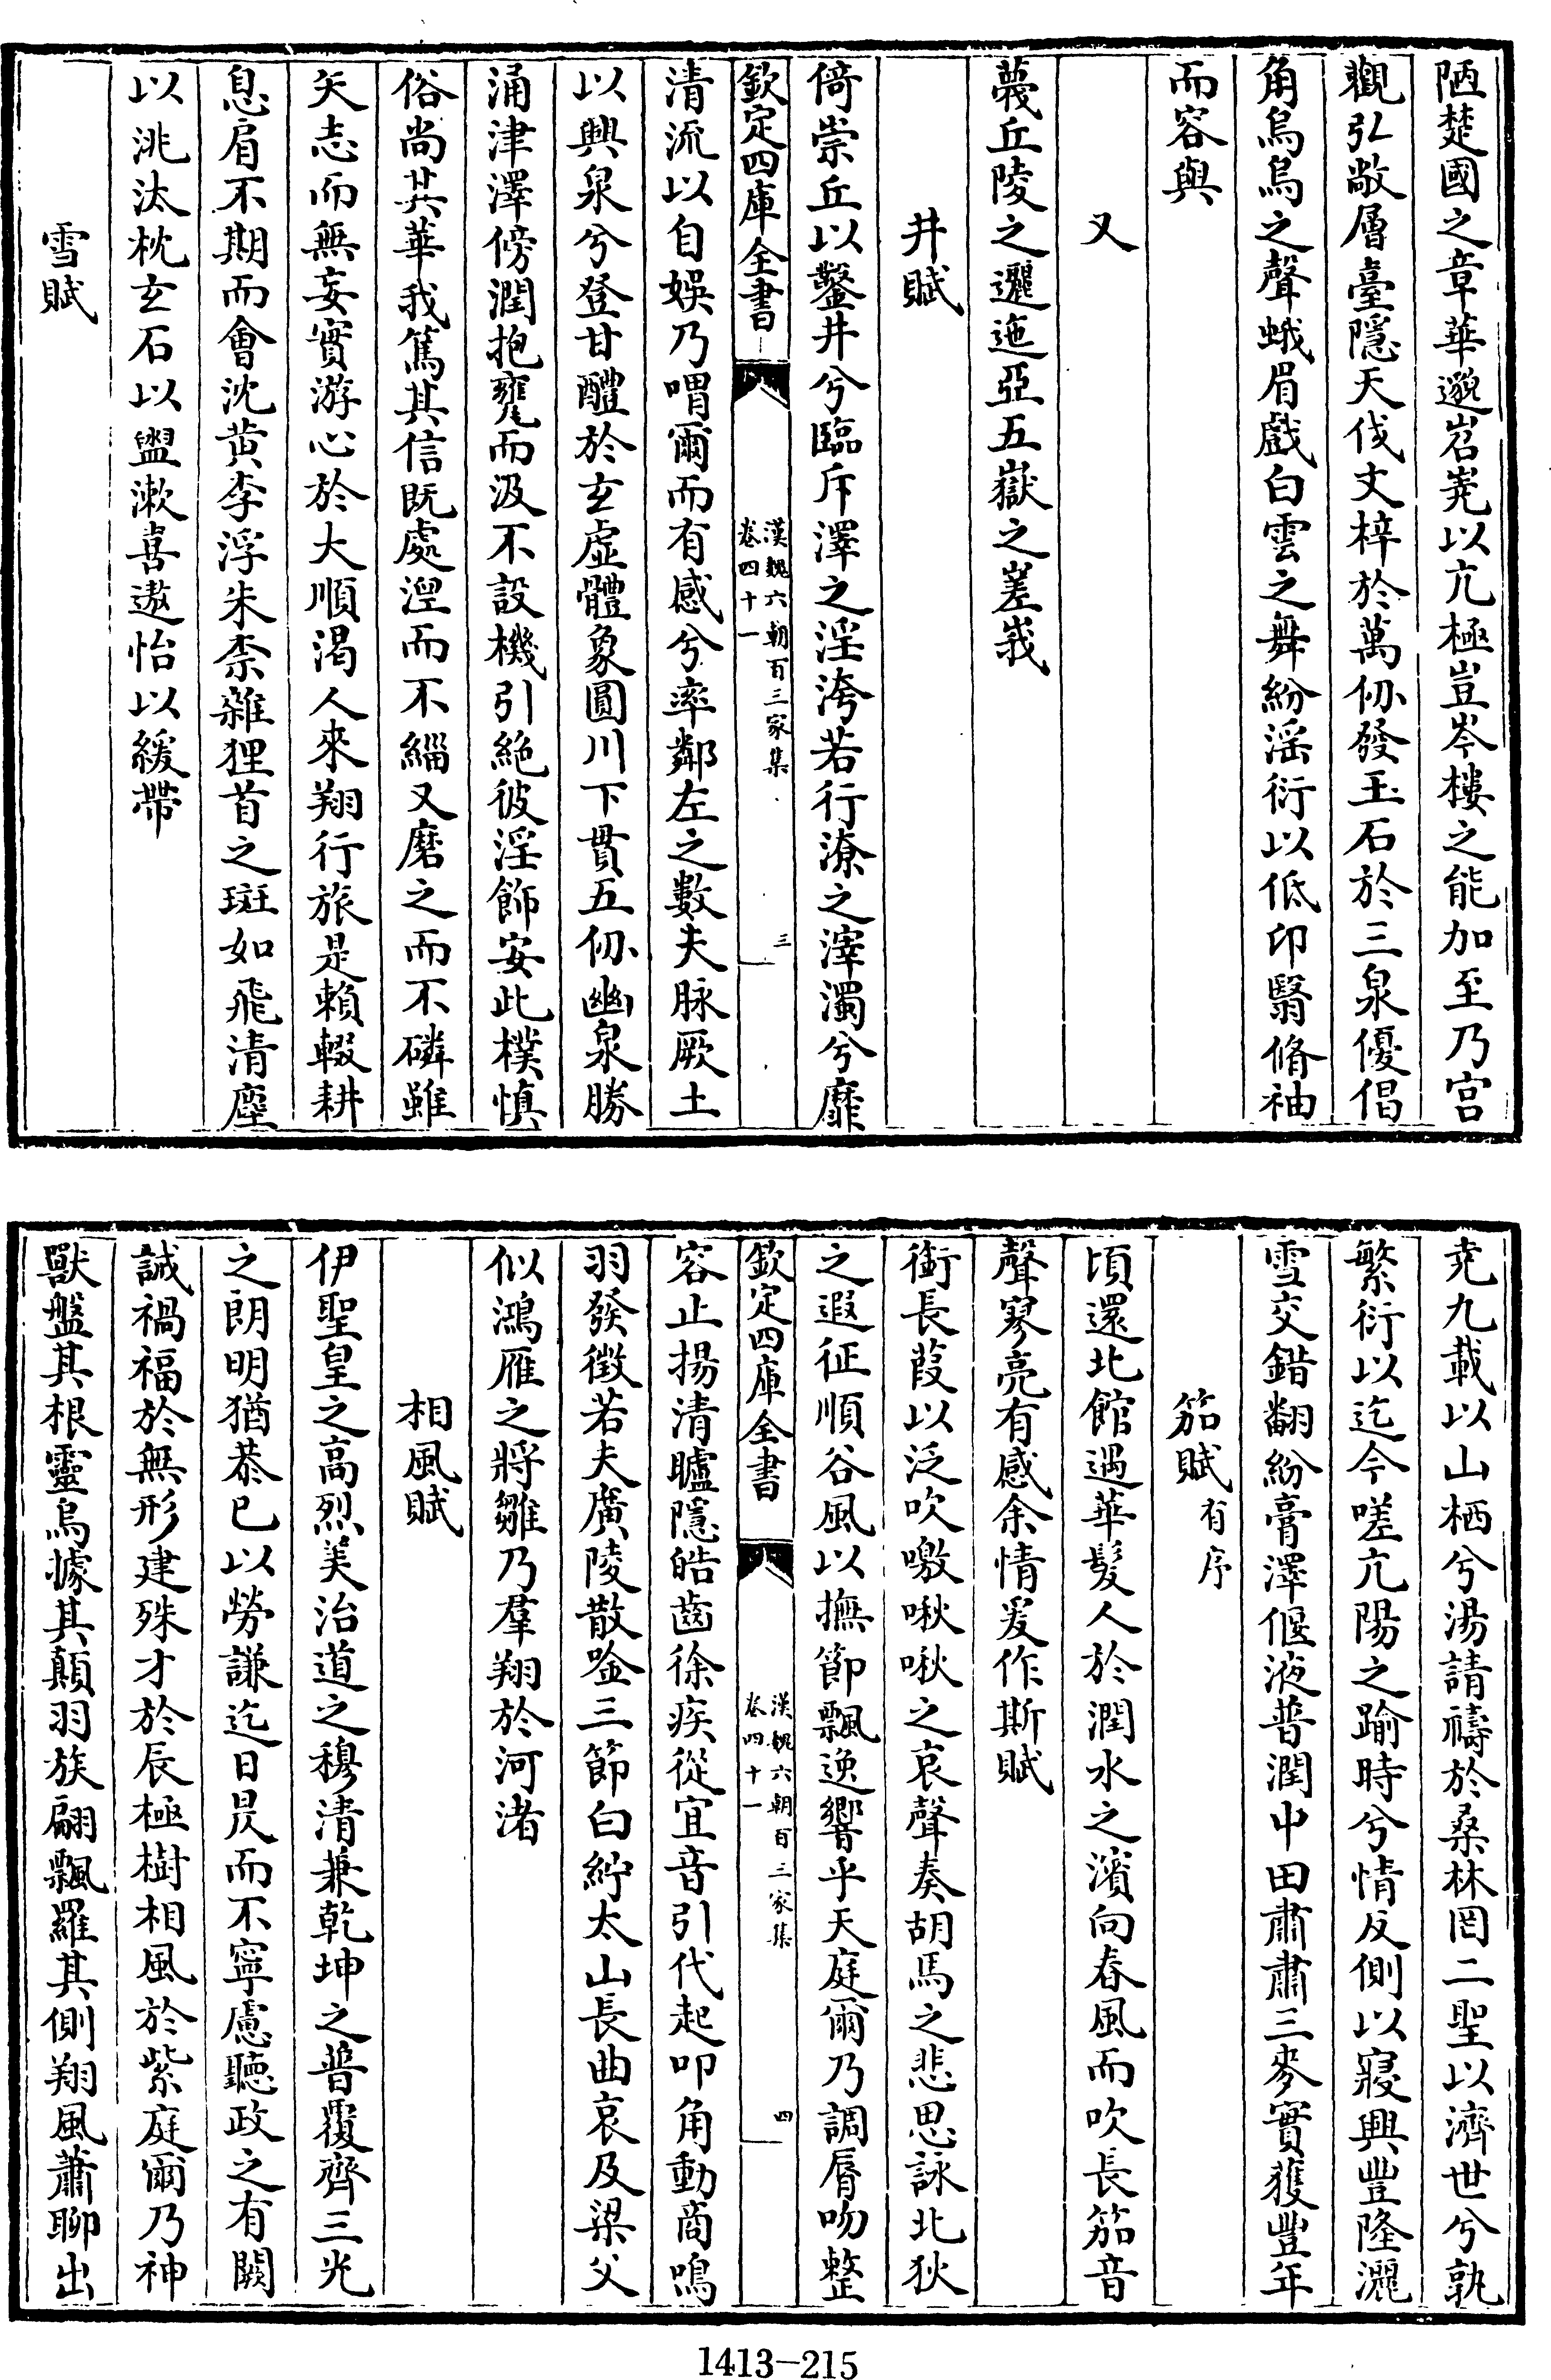 陋楚國之章華邈岧嶤以亢極豈岑樓之能加至乃宫
觀弘敞層臺隱天伐文梓於萬仭發玉石於三泉優倡
角烏烏之聲蛾眉戲白雲之舞紛淫衍以低卬翳脩袖
而容與
又
薎丘陵之邐迤亞五嶽之嵳峩
井賦
倚崇丘以鑿井兮臨斥澤之淫洿若行潦之滓濁兮靡
欽定四庫全書
漢魏六朝百三家集
卷四十一
三
清流以自娛乃喟爾而有感兮率鄰左之數夫脉厥土
以興泉兮登甘醴於玄虛體象圓川下貫五仭幽泉勝
涌津澤傍潤抱甕而汲不設機引絶彼淫飾安此樸慎
俗尚其華我篤其信既處湼而不緇又磨之而不磷雖
矢志而無妄實游心於大順渴人來翔行旅是賴輟耕
息肩不期而會沈黄李浮朱柰雜狸首之斑如飛清塵
以洮汰枕玄石以盥漱喜遨怡以緩帶
雪賦
堯九載以山栖兮湯請禱於桑林罔二聖以濟世兮孰
繁衍以迄今嗟亢陽之踰時兮情反側以寢興豐隆灑
雪交錯翻紛膏澤偃液普潤中田肅肅三麥實獲豐年
笳賦有序
頃還北館遇華髮人於潤水之濱向春風而吹長笳音
聲寥亮有感余情爰作斯賦
銜長葭以泛吹噭啾啾之哀聲奏胡馬之悲思詠北狄
之遐征順谷風以撫節飄逸響乎天庭爾乃調脣吻整
欽定四庫全書
漢魏六朝百三家集
卷四十一
四
容止揚清矑隱皓齒徐疾從宜音引代起叩角動商鳴
羽發徵若夫廣陵散唫三節白紵太山長曲哀及梁父
似鴻雁之將雛乃羣翔於河渚
相風賦
伊聖皇之高烈美治道之穆清兼乾坤之普覆齊三光
之朗明猶恭已以勞謙迄日昃而不寧慮聽政之有闕
誡禍福於無形建殊才於辰極樹相風於紫庭爾乃神
獸盤其根靈烏據其顛羽族翩飄羅其側翔風蕭聊出
1413-215